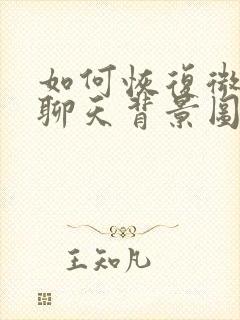 如何恢復微
聊天背景圖
王知凡